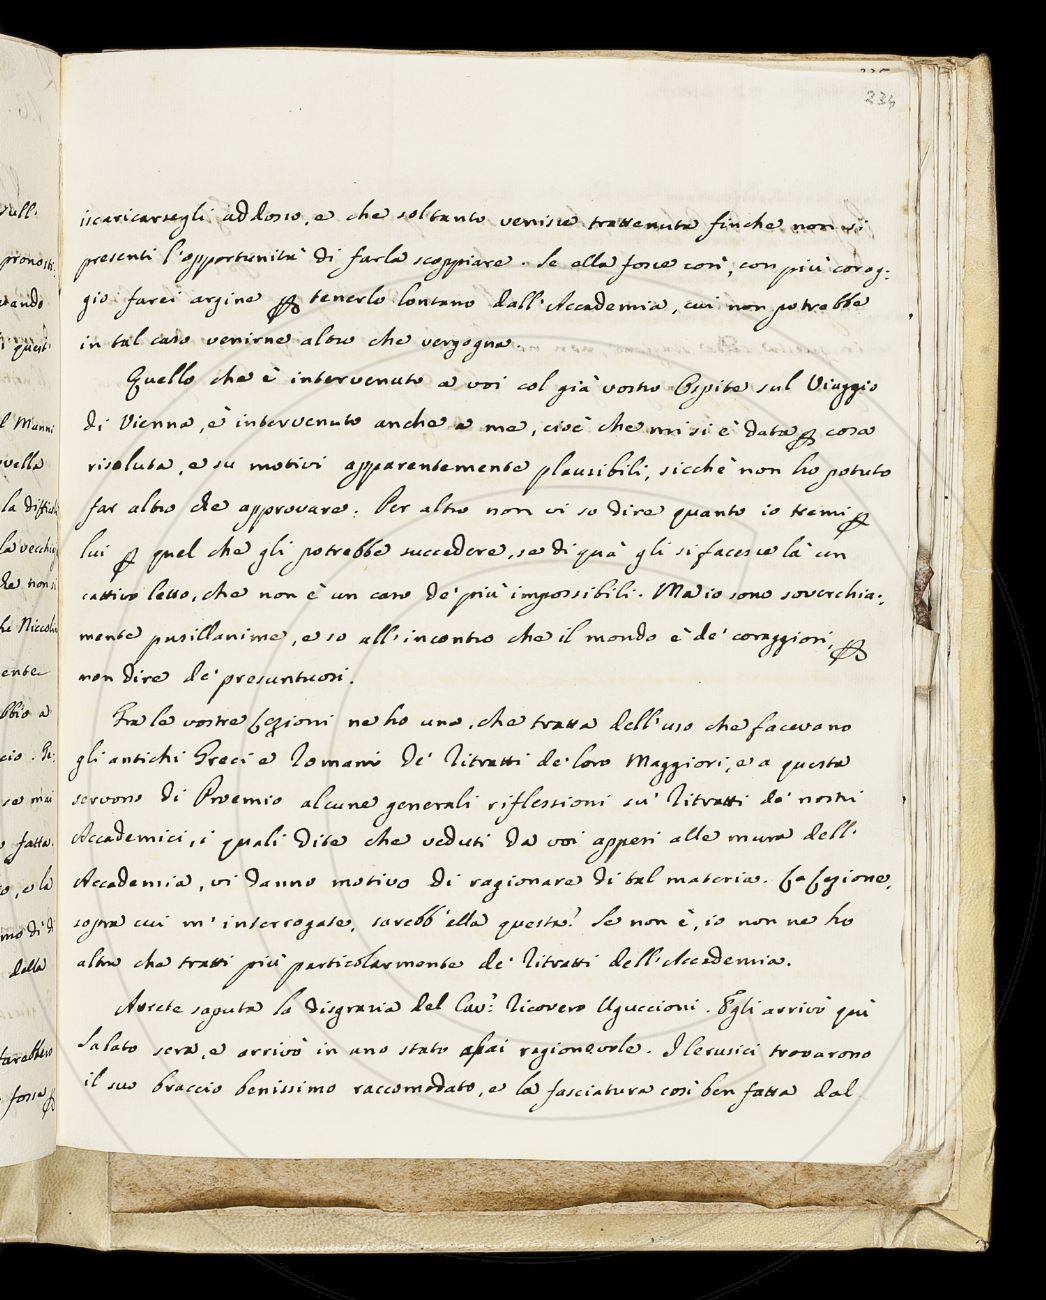 234
iscaricarsegli addosso, e che soltanto venisse trattenuta finche non si
presenti l'opportunità di farla scoppiare. Se ella fosse così, con più corag-
gio farei argine per tenerlo lontano dall'Accademia, cui non potrebbe
in tal caso venirne altro che vergogna.
Quello che è intervenuto a voi col già vostro Ospite sul Viaggio
di Vienna, è intervenuto anche a me, cioè che mi si è data per cosa
risoluta, e su motivi apparentemente plausibili, sicchè non ho potuto
far altro che approvare. Per altro non vi so dire quanto io tremi per
lui per quel che gli potrebbe succedere, se di quà gli si facesse là un
cattivo letto, che non è un caso de' più impossibili. Ma io sono soverchia-
mente pusillanime, e so all'incontro che il mondo è de' coraggiosi, per
non dire de' presuntuosi.
Fra le vostre Lezioni ne ho una, che tratta dell'uso che facevano
gli antichi Greci e Romani de' Ritratti de' loro Maggiori, e a questa
servono di Proemio alcune generali riflessioni su' Ritratti de' nostri
Accademici, i quali dite che veduti da voi appesi alle mura dell'
Accademia, vi danno motivo di ragionare di tal materia. La Lezione,
sopra cui m'interrogate, sarebb'ella questa? Se non è, io non ne ho
altra che tratti più particolarmente de' Ritratti dell'Accademia.
Avrete saputa la disgrazia del Cav.r Ricovero Uguccioni. Egli arrivò quì
Sabato sera, e arrivò in uno stato assai ragionevole. I Cerusici trovarono
il suo braccio benissimo raccomodato, e la fasciatura così ben fatta dal